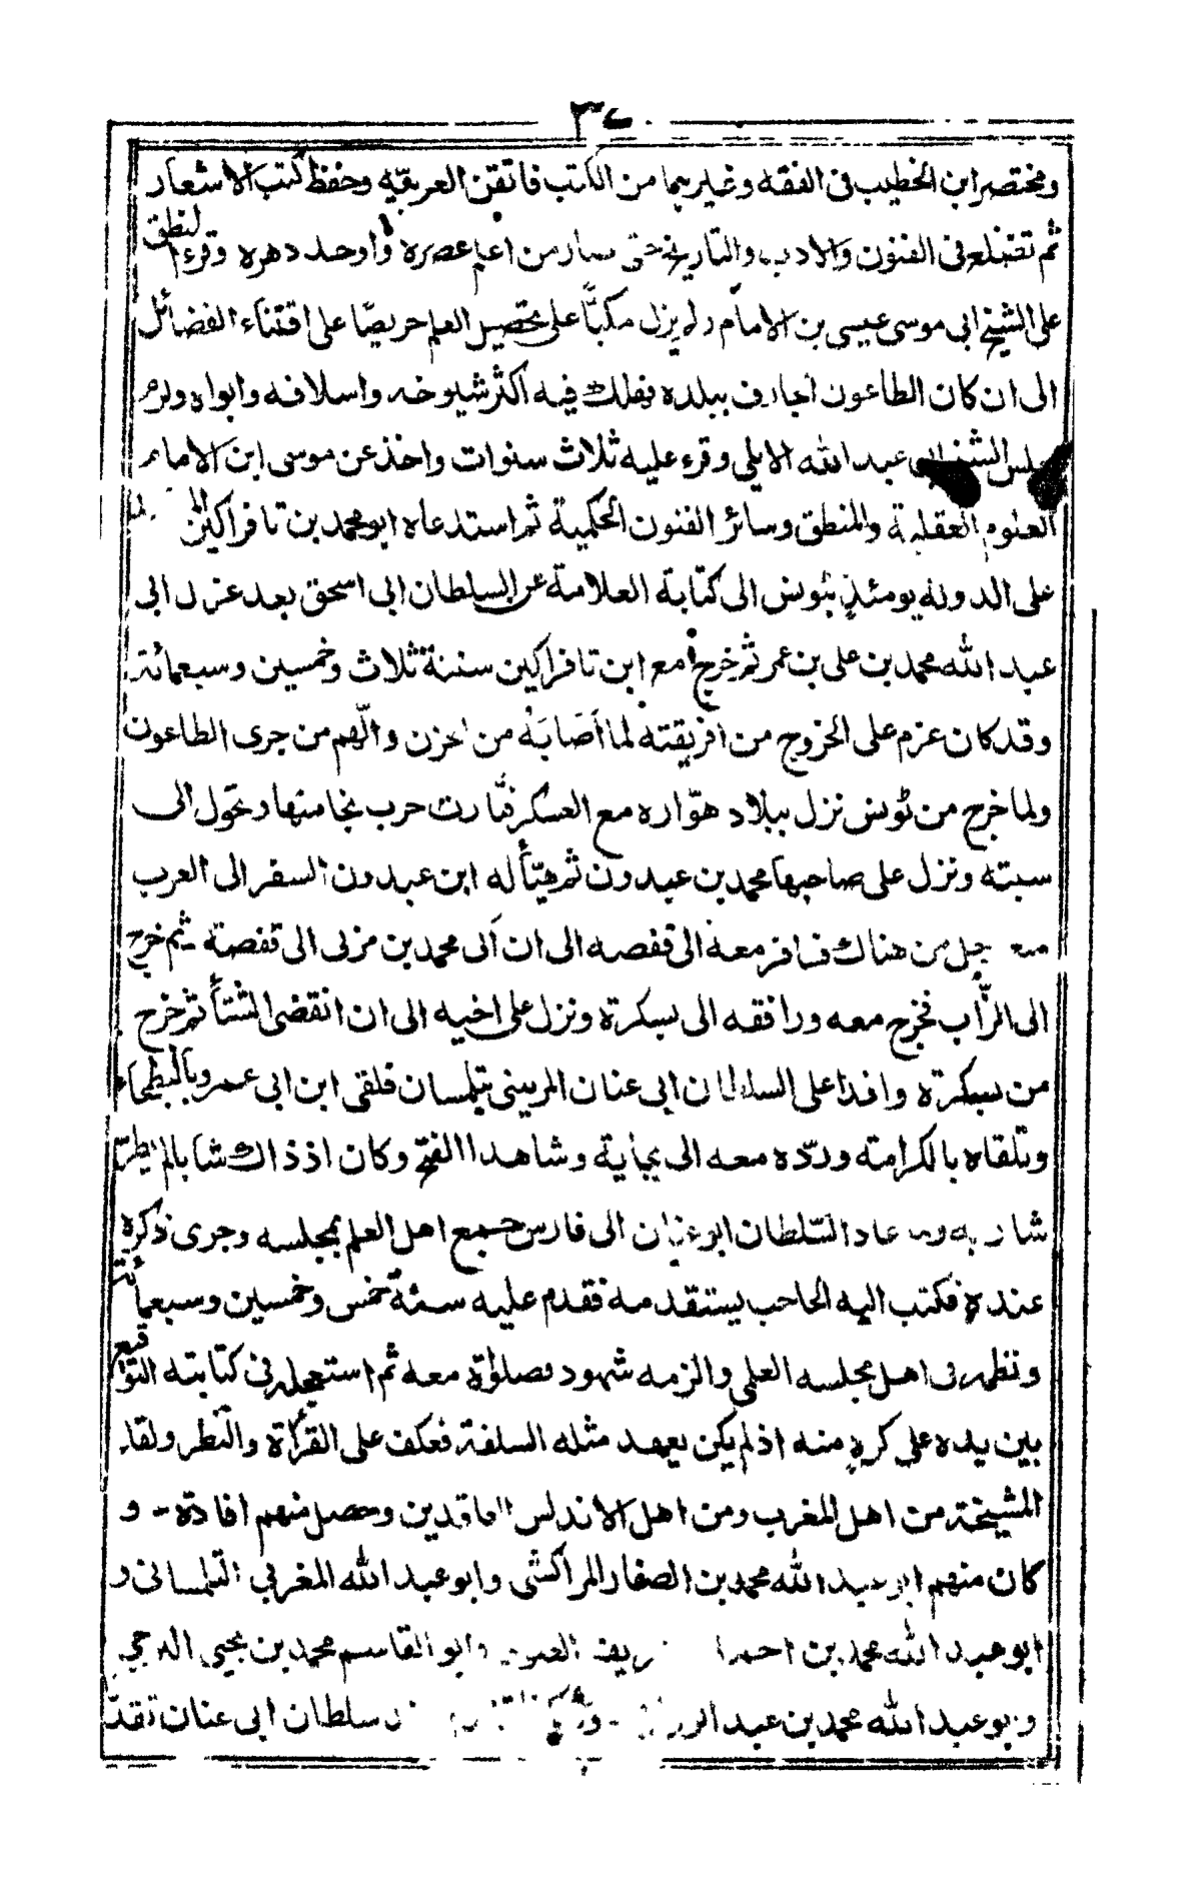 ٣٤
ومختصر ابن الخطيب فى الفقه وغيرهما من الكتب فاتقن العربيه وحفظ كتب الاشعار
ثم تضلع فى الفنون والادب والتاريخ حتى صار من اعلم عصره واوحد دهره وقرء المنطق
على الشيخ ابى موسى عيسى بن الامام ولم يزل مكبًّا على تحصيل العلم حريصًا على اقتناء الفضائل
الى ان كان الطاعون الجارف ببلده فهلك فيه اكثر شيوخه واسلافه وابواه ولزم
مجلس الشيخ ابى عبد الله الايلى وقرء عليه ثلاث سنوات واخذ عن موسى ابن الامام
العلوم العقلية والمنطق وسائر الفنون الحكمية ثم استدعاه ابو محمد بن تافراكين
على الدولة يومئذٍ بتونس الى كتابة العلامة عن السلطان ابى اسحق بعد عزل ابى
عبد الله محمد بن على بن عمر ثم خرج مع ابن تافراكين سنة ثلاث وخمسين وسبعمائة
وقد كان عزم على الخروج من افريقته لما اصَابَهُ من الحزن والهم من جرى الطاعون
ولما خرج من تونس نزل ببلاد هوّاره مع العسكر حرب نجا منها وتحول الى
سبته ونزل على صاحبها محمد بن عبدون ثم هيّأ له ابن عبدون السفر الى العرب
مع من هناك فسافر معه الى قفصه الى ان اَتى محمد بن مزنى الى قفصة ثم خرج
الى الزّاب فخرج معه ورافقه الى بسكرة ونزل على اخيه الى ان انقضى الشتأ ثم خرج
من بسكرة وافدا على السلطان ابى عنان المرينى بتلمسان فلقى ابن ابى عمر وبالبطحاء
وتلقاه بالكرامته وردّه معه الى بجاية وشاهد الفتح وكان اذ ذاك شابا لم يطر
شاربه ولما عاد السّلطان ابو عنان الى فارس جمع اهل العلم بمجلسه وجرى ذكره
عنده فكتب اليه الحاجب يستقدمه فقدم عليه سنة خمس وخمسين وسبعمائة
ونظمه فى اهل مجلسه العلمى والزمه شهود صلواة معه ثم استعمله فى كتابته التواقيع
بين يده على كرهٍ منه اذ لم يكن يعهد مثله السلفة فعكف على القرأة والنظر ولقاء
المشيخة من اهل المغرب ومن اهل الاندلس الوافدين وحصل منهم افادة- و
كان منهم ابو عبد الله محمد بن الصفار المراكشى وابو عبد الله المغربي التلمسانى و
ابو عبد الله محمد بن احمد الشريف العلوى وابو القاسم محمد بن يحيى البرجى
وابو عبد الله محمد بن عبد الرزاق سلطان ابى عنان